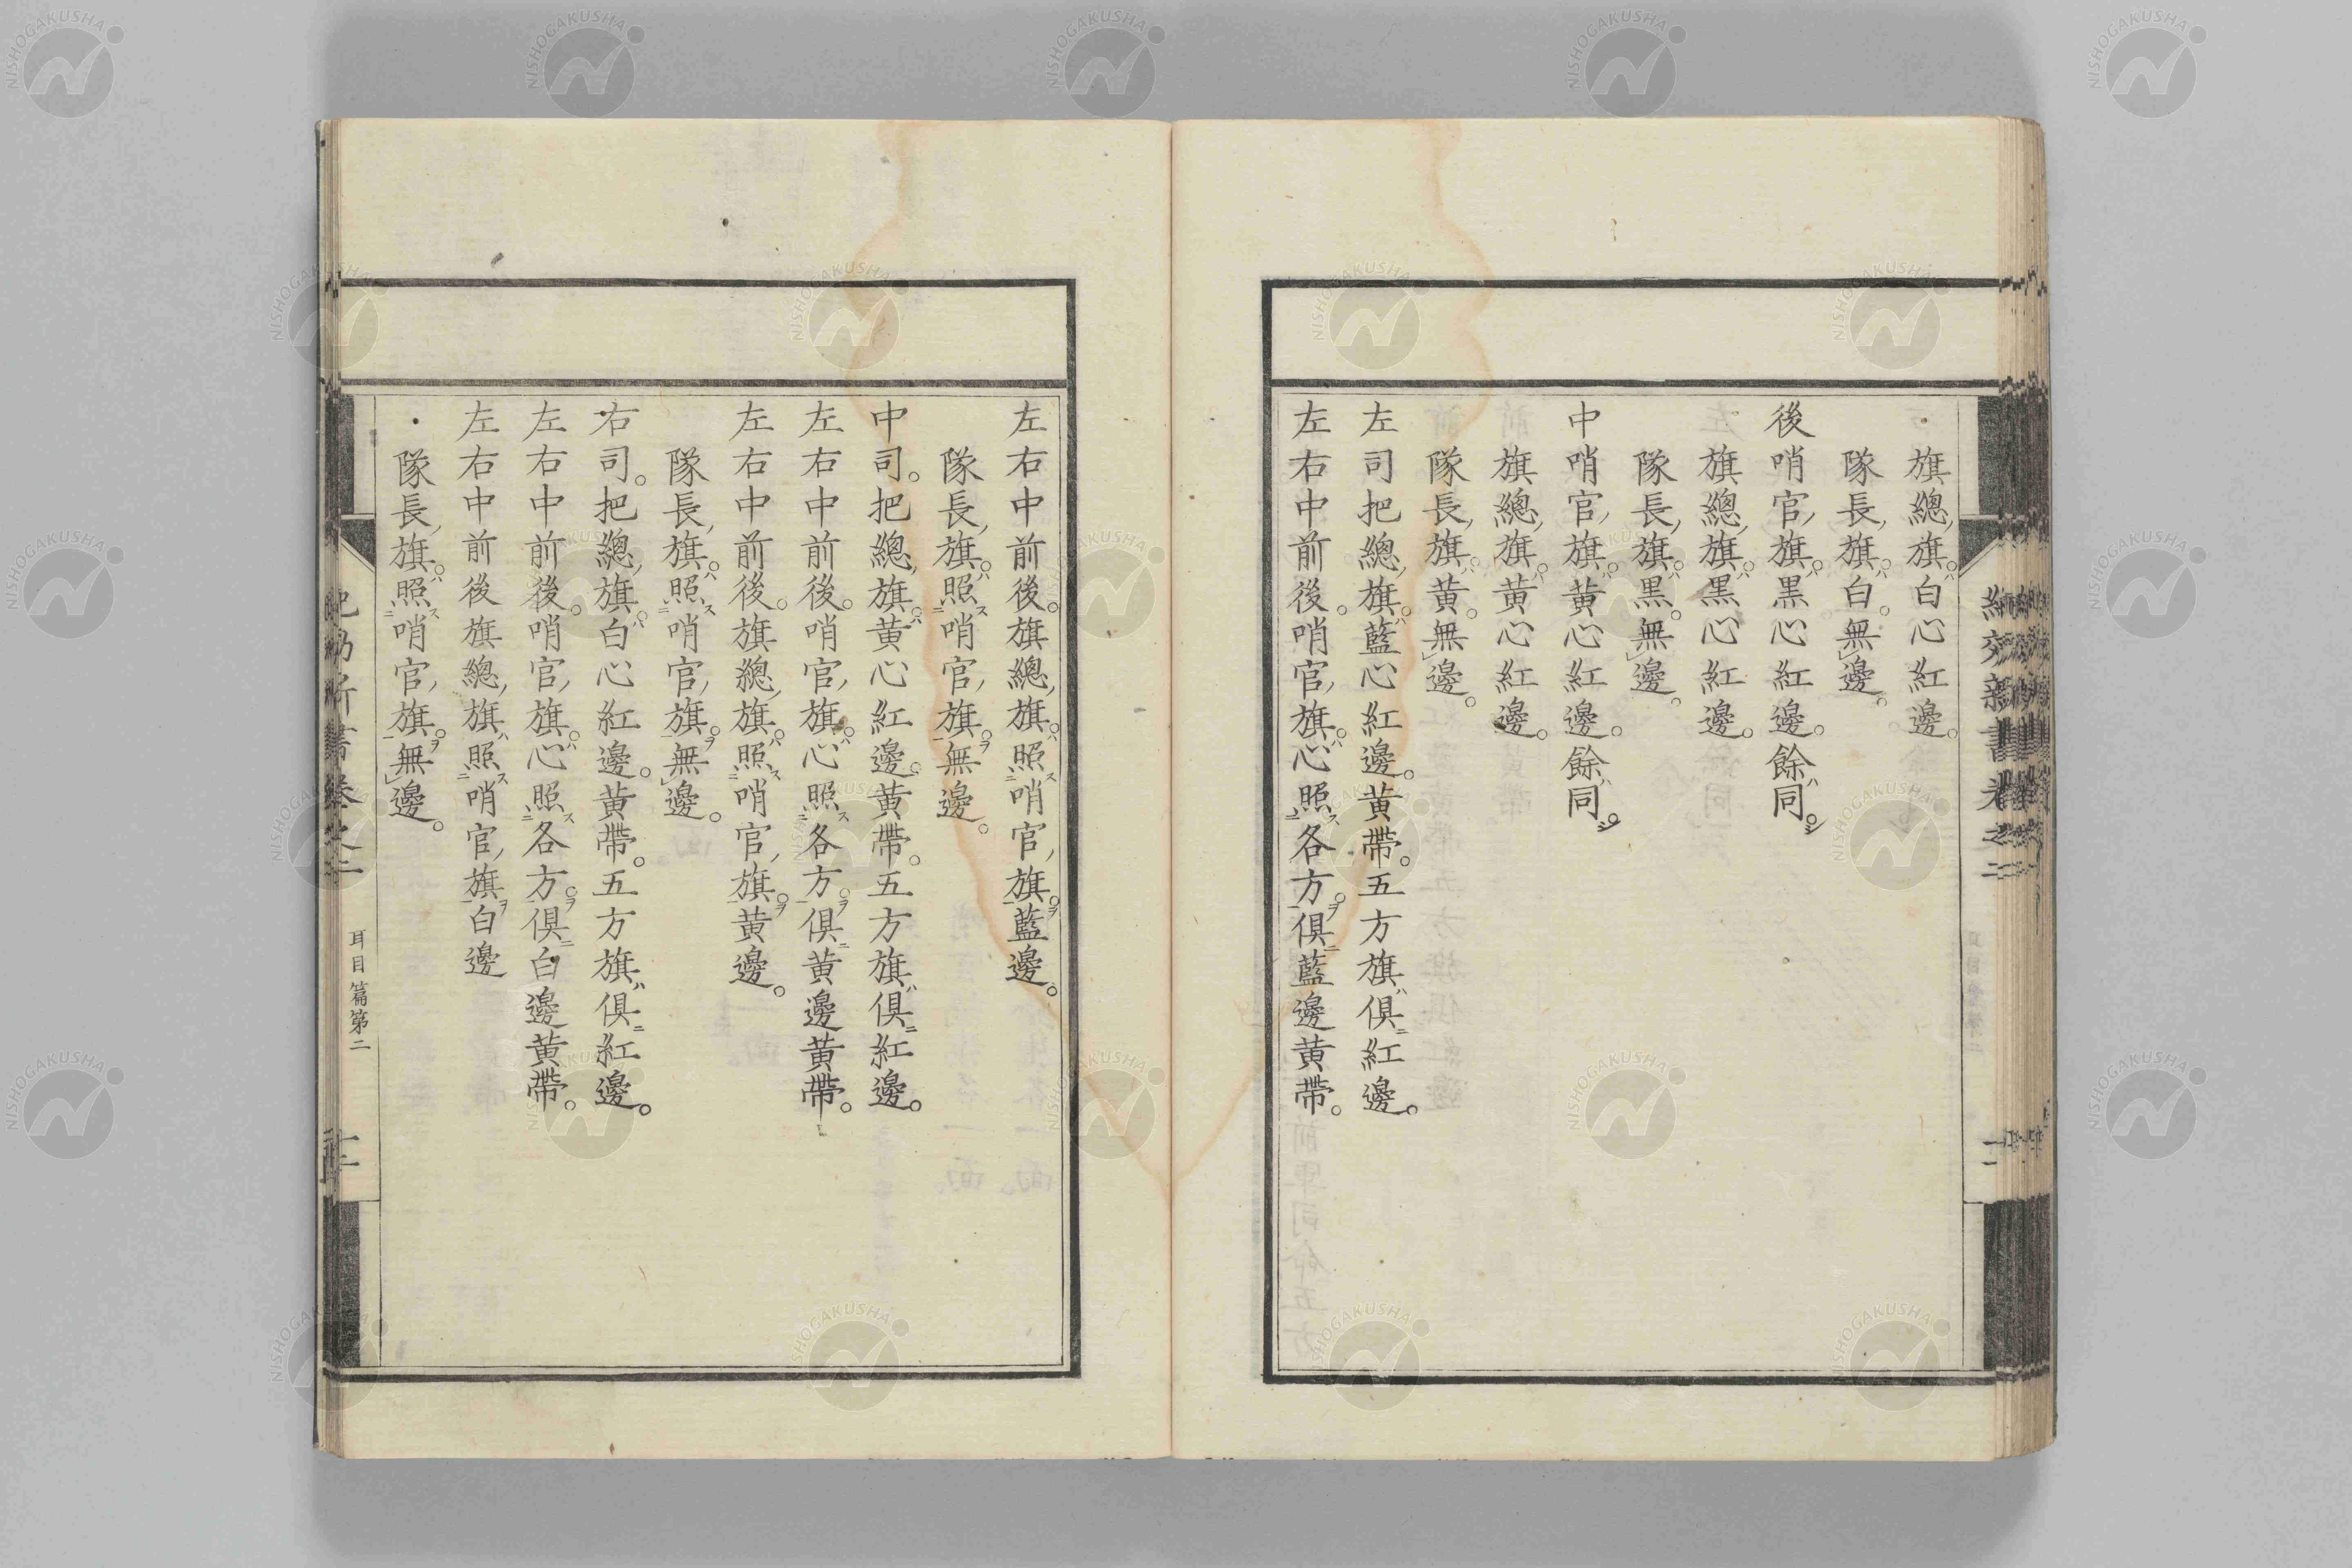 旗總旗白心紅邊。
隊長旗白。無邊。
後哨官旗黑心紅邊。餘同。
旗總旗黑心紅邊。
隊長旗黑。無邊。
中哨官旗黃心紅邊。餘同。
旗總旗黃心紅邊。
隊長旗黃。無邊。
左司把總旗藍心紅邊。黃帶。五方旗俱紅邊。
左右中前後。哨官旗心照各方。俱藍邊黃帶。
左右中前後。旗總旗照哨官旗藍邊。
隊長旗照哨官旗無邊。
中司。把總旗黃心紅邊。黃帶。五方旗俱紅邊。
左右中前後。哨官旗心照各方。俱黃邊黃帶。
左右中前後。旗總旗照哨官旗黃邊。
隊長旗照哨官旗無邊。
右司。把總旗白心紅邊。黃帶。五方旗俱紅邊。
左右中前後。哨官旗心照各方。俱白邊黃帶。
左右中前後旗總旗照哨官旗白邊
隊長旗照哨官旗無邊。
耳目篇第二
十二
NISHOGAKUSHA